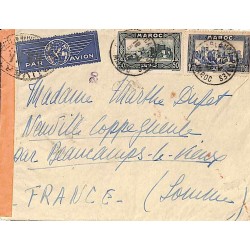 PAR AVION
MAROC
50
MAROC
Madame Marthe Dufet
Neuville Coppegueule
par Beaucamps-le-Vieux
FRANCE (Somme)